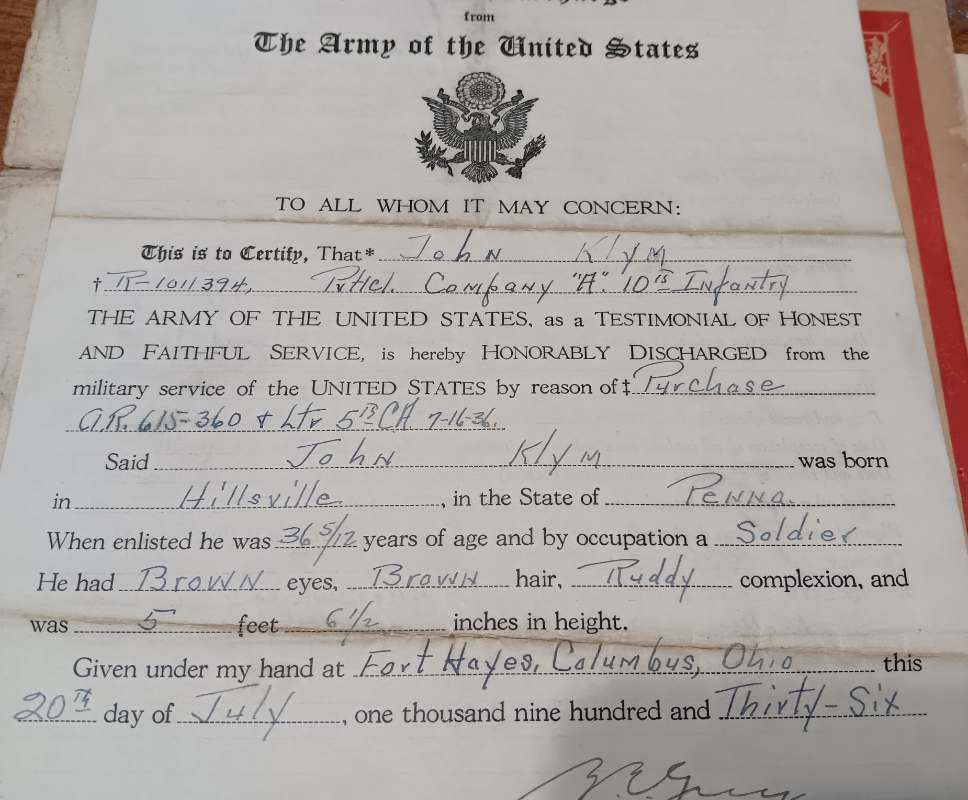 from
The Army of the United States
TO ALL WHOM IT MAY CONCERN:
This is to Certify, That* John Klym
† R-1011394, Pvt1cl. Company "A". 10th Infantry
THE ARMY OF THE UNITED STATES, as a TESTIMONIAL OF HONEST
AND FAITHFUL SERVICE, is hereby HONORABLY DISCHARGED from the
military service of the UNITED STATES by reason of‡ Purchase
A.R. 615-360 & Ltr 5th CA 7-16-36.
Said John Klym was born
in Hillsville, in the State of Penna.
When enlisted he was 36 5/12 years of age and by occupation a Soldier
He had Brown eyes, Brown hair, Ruddy complexion, and
was 5 feet 6 1/2 inches in height.
Given under my hand at Fort Hayes, Columbus, Ohio this
20th day of July, one thousand nine hundred and Thirty-Six